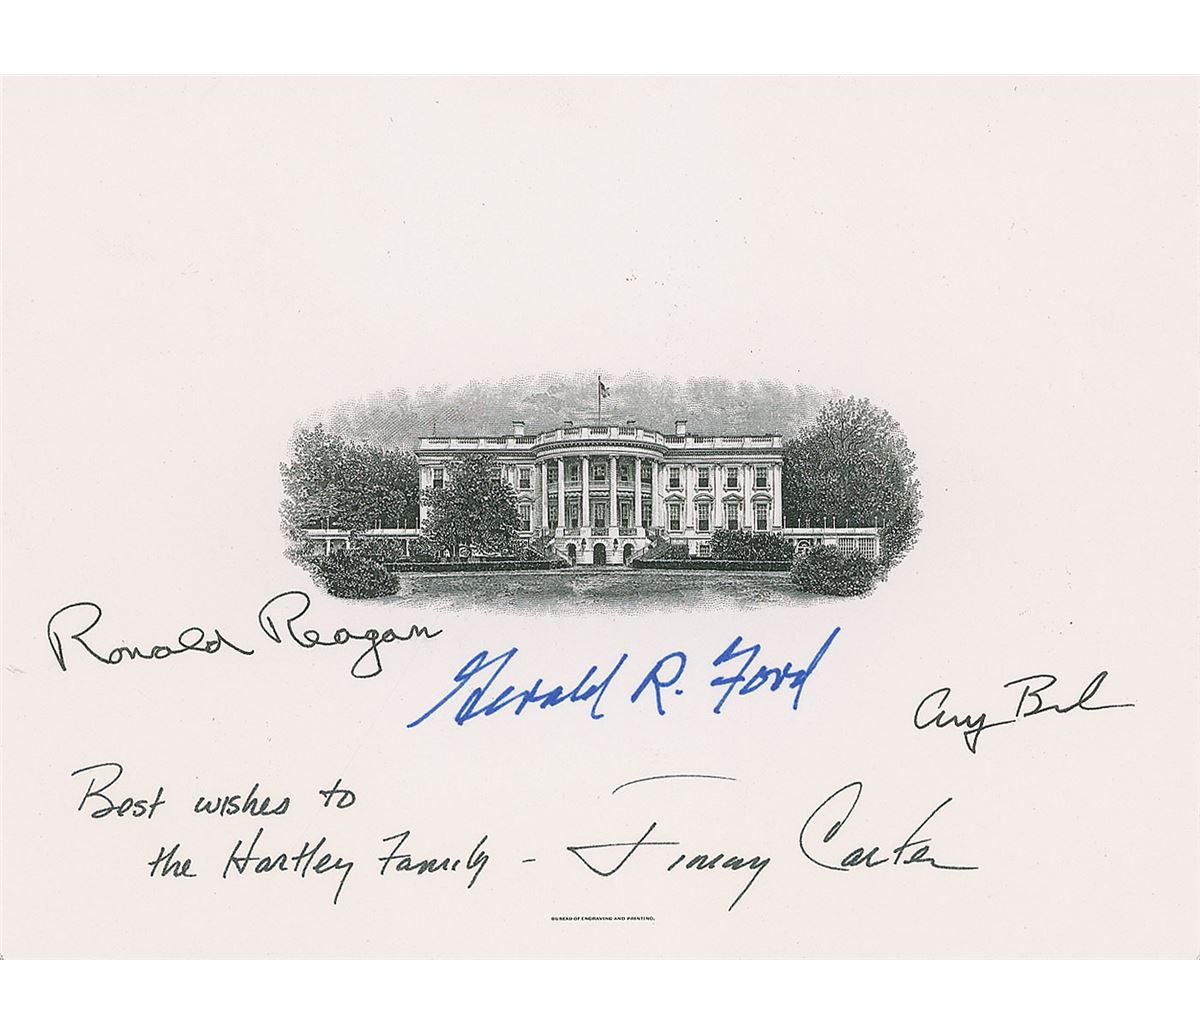 Ronald Reagan
Gerald R. Ford
Best wishes to
the Hartley Family - Jimmy Carter
BUREAU OF ENGRAVING AND PRINTING.